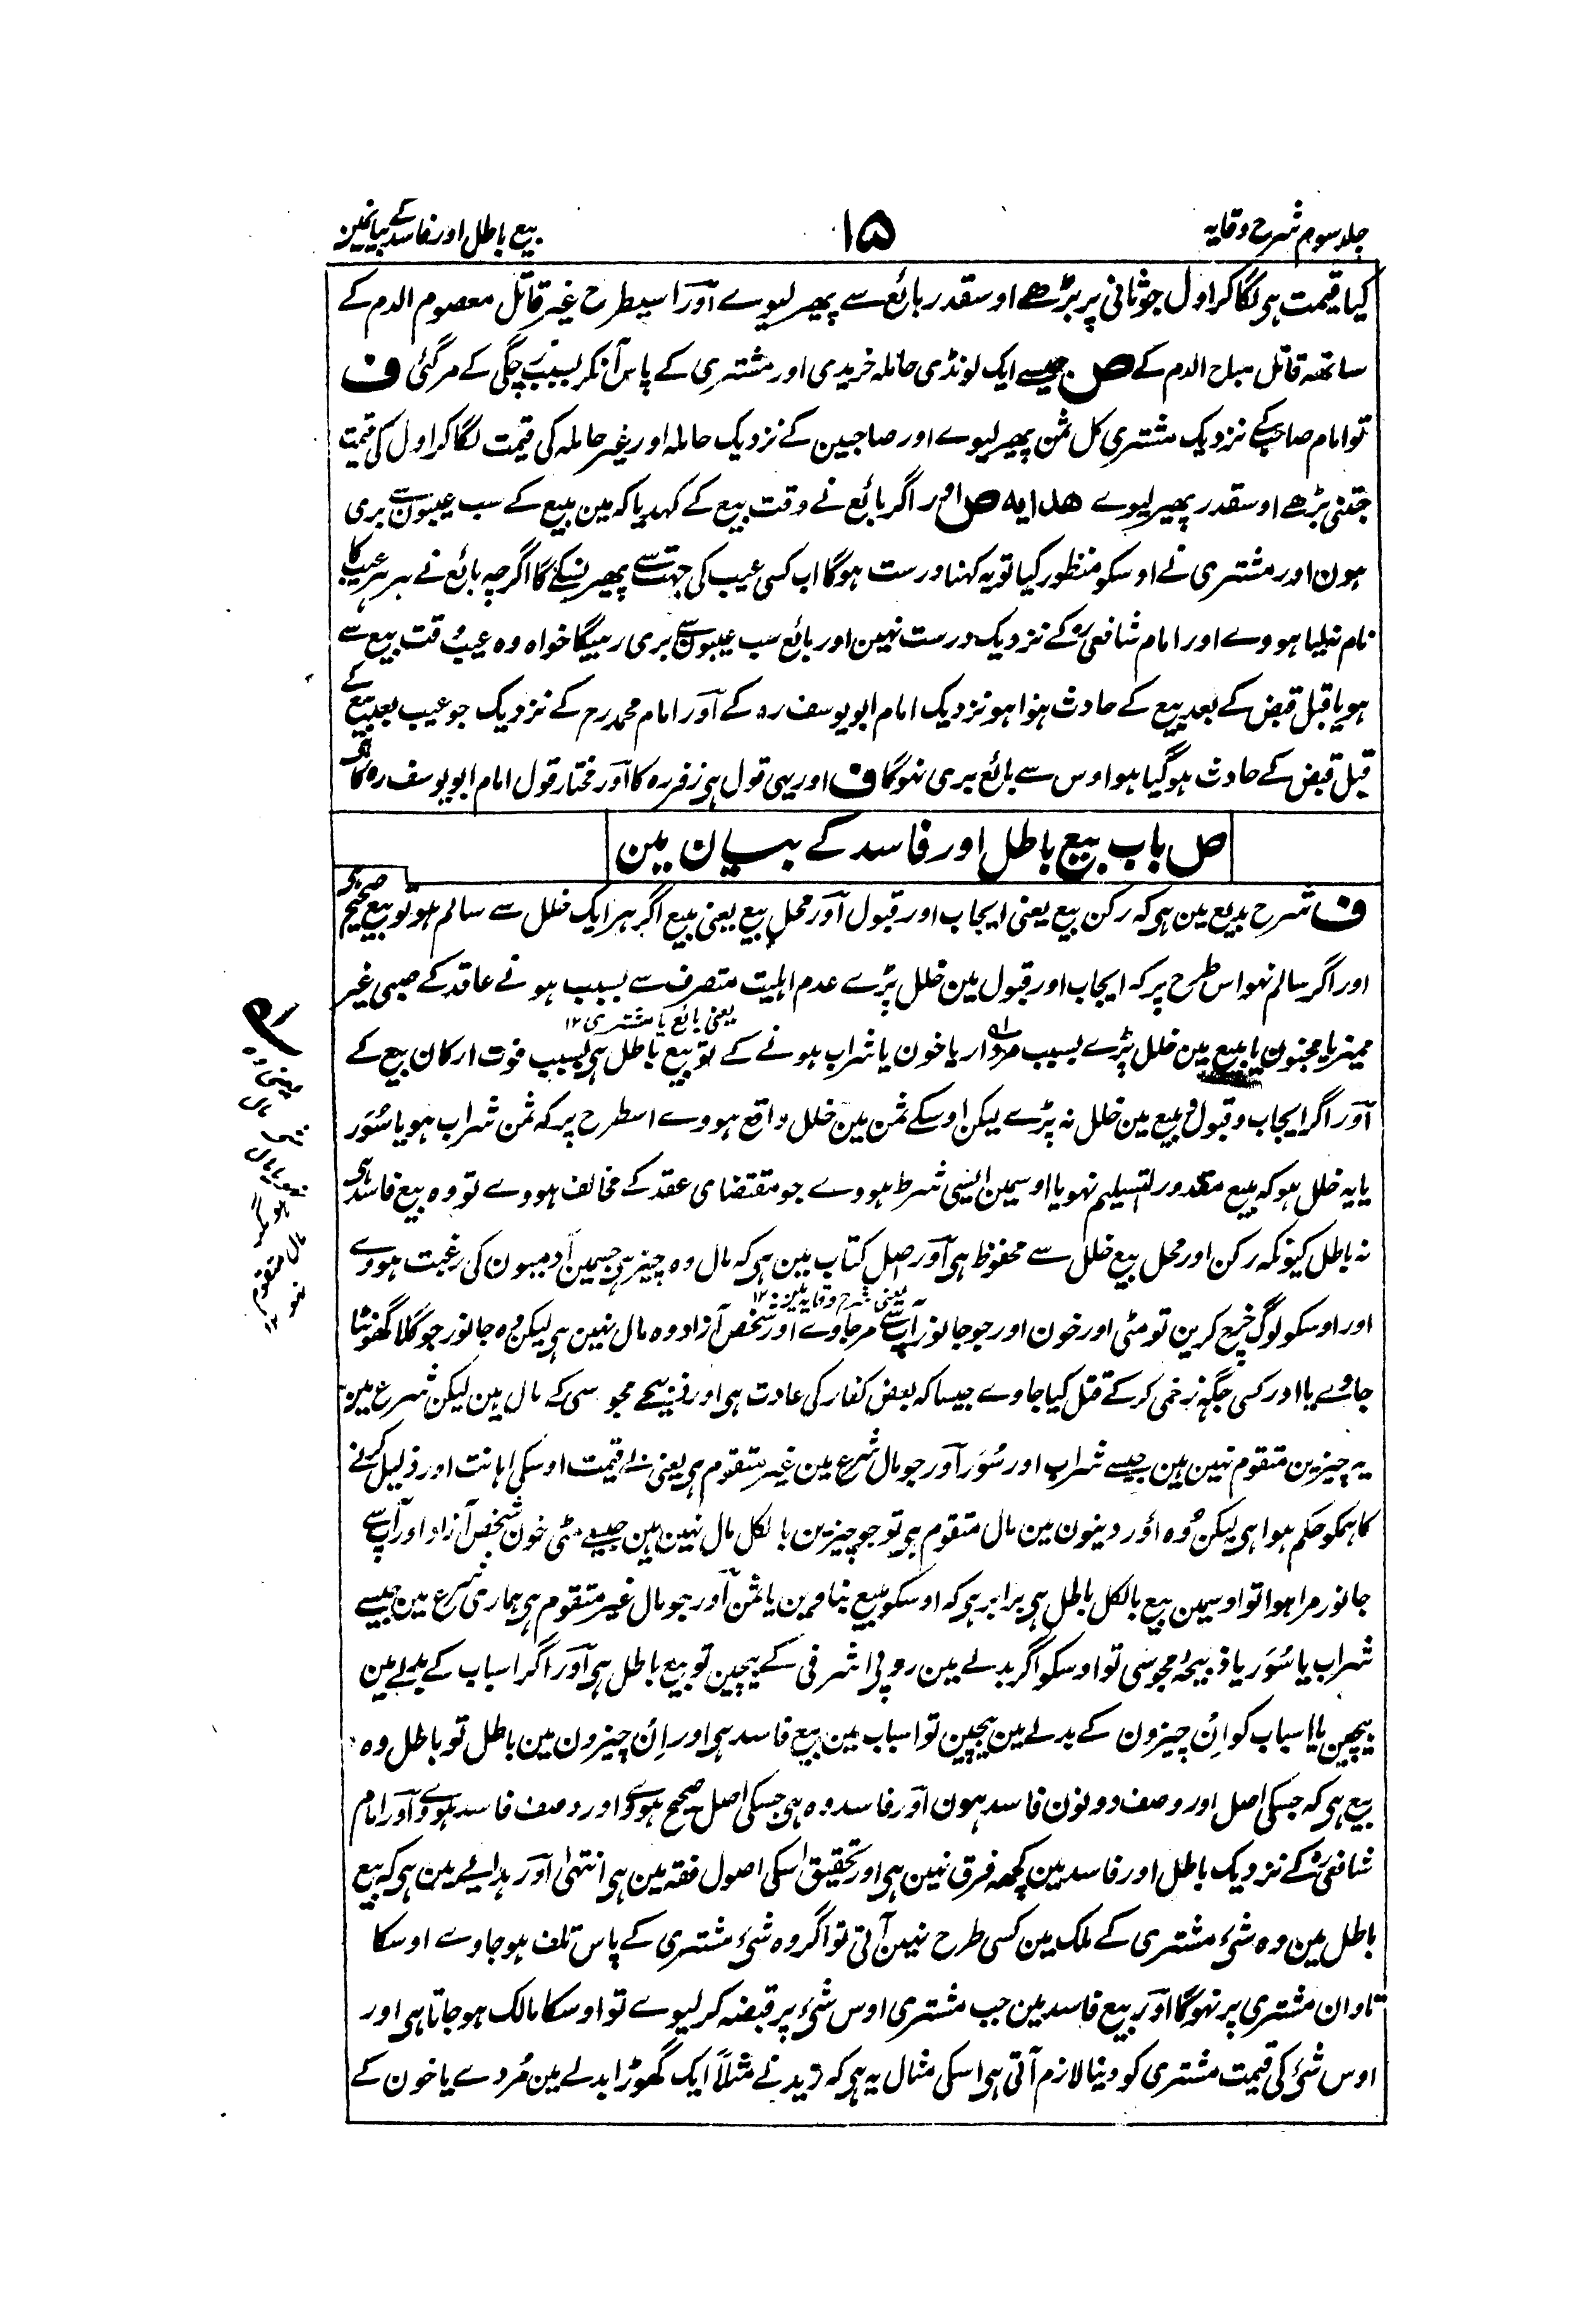 جلد سوم شرح وقایہ
۱۵
بیع باطل اور فاسد کے بیانمین
کیا قیمت ہی لگا کر اول جو ثانی پر بڑھے اوسقدر بائع سے پھیر لیوے آور اسیطرح غیر قاتل معصوم الدم کے
ساتھ قاتل مباح الدم کے ص جیسے ایک لونڈی حاملہ خریدی اور مشتری کے پاس آنکر بسبب زچگی کے مرگئی ف
تو امام صاحب کے نزدیک مشتری کل ثمن پھیر لیوے اور صاحبین کے نزدیک حاملہ اور غیر حاملہ کی قیمت لگا کر اول کی قیمت
جتنی بڑھے اوسقدر پھیر لیوے ھدایہ ص اور اگر بائع نے وقت بیع کے کہدیا کہ مین مبیع کے سب عیبون سے بری
ہون اور مشتری نے اوسکو منظور کیا تو یہ کہنا درست ہوگا اب کسی عیب کی جہت سے پھیر نسکے گا اگرچہ بائع نے ہر ہر عیب کا
نام نلیا ہووے اور امام شافعیؒ کے نزدیک درست نہین اور بائع سب عیبون سے بری رہیگا خواہ وہ عیب وقت بیع سے
ہو یا قبل قبض کے بعد بیع کے حادث ہوا ہو نزدیک امام ابو یوسف رہ کے آور امام محمد رح کے نزدیک جو عیب بعد بیع کے
قبل قبض کے حادث ہو گیا ہو اوس سے بائع بری نہوگا ف اور یہی قول ہی زفر رہ کا آور مختار قول امام ابو یوسف رہ کا ہی
ص باب بیع باطل اور فاسد کے بیان مین
ف شرح بدیع مین ہی کہ رکن بیع یعنی ایجاب اور قبول آور محل بیع یعنی مبیع اگر ہر ایک خلل سے سالم ہو تو بیع صحیح ہی
اور اگر سالم نہو اس طرح پر کہ ایجاب اور قبول مین خلل پڑے عدم اہلیت متصرف سے بسبب ہونے عاقد کے صبی غیر
یعنی بائع یا مشتری ۱۲
ممیز یا مجنون یا مبیع مین خلل پڑے بسبب مردار یا خون یا شراب ہونے کے تو بیع باطل ہی بسبب فوت ارکان بیع کے
آور اگر ایجاب و قبول و مبیع مین خلل نہ پڑے لیکن اوسکے ثمن مین خلل واقع ہووے اسطرح پر کہ ثمن شراب ہو یا سُوَر
یا یہ خلل ہو کہ مبیع مقدور التسلیم نہو یا اوسمین ایسی شرط ہووے جو مقتضای عقد کے مخالف ہووے تو وہ بیع فاسد ہی
نہ باطل کیونکہ رکن اور محل بیع خلل سے محفوظ ہی آور اصل کتاب مین ہی کہ مال وہ چیز ہی جسمین آدمیون کی رغبت ہووے
یعنی شرح وقایہ مین ۱۲
اور اوسکو لوگ خرچ کرین تو مٹی اور خون اور جو جانور آپ سے مرجاوے اور شخص آزاد وہ مال نہین ہی لیکن وہ جانور جو گلا گھونٹا
جاوے یا اور کسی جگہ زخمی کر کے قتل کیا جاوے جیسا کہ بعض کفار کی عادت ہی اور ذبیحے مجوسی کے مال ہین لیکن شرع مین
یہ چیزین متقوم نہین ہین جیسے شراب اور سُوَر آور جو مال شرع مین غیر متقوم ہی یعنی بے قیمت اوسکی اہانت اور ذلیل کرنے
کا ہمکو حکم ہوا ہی لیکن وُہ اَور دینون مین مال متقوم ہی تو جو چیزین بالکل مال نہین ہین جیسے مٹی خون شخص آزاد اور آپ سے
جانور مرا ہوا تو اوسمین بیع بالکل باطل ہی برابر ہی کہ اوسکو مبیع بناوین یا ثمن آور جو مال غیر متقوم ہی ہماری شرع مین جیسے
شراب یا سُوَر یا ذبیحۂ مجوسی تو اوسکو اگر بدلے مین روپی اشرفی کے بیچین تو بیع باطل ہی آور اگر اسباب کے بدلے مین
بیچین یا اسباب کو اِن چیزون کے بدلے مین بیچین تو اسباب مین بیع فاسد ہی اور اِن چیزون مین باطل تو باطل وہ
بیع ہی کہ جسکی اصل اور وصف دونون فاسد ہون آور فاسد وہ ہی جسکی اصل صحیح ہووے اور وصف فاسد ہووے آور امام
شافعیؒ کے نزدیک باطل اور فاسد مین کچھ فرق نہین ہی اور تحقیق اسکی اصول فقہ مین ہی انتہی اور ہدائے مین ہی کہ بیع
باطل مین وہ شئ مشتری کے ملک مین کسی طرح نہین آتی تو اگر وہ شئ مشتری کے پاس تلف ہو جاوے اوسکا
تاوان مشتری پر نہوگا آور بیع فاسد مین جب مشتری اوس شئ پر قبضہ کر لیوے تو اوسکا مالک ہو جاتا ہی اور
اوس شئ کی قیمت مشتری کو دینا لازم آتی ہی اسکی مثال یہ ہی کہ زید نے مثلاً ایک گھوڑا بدلے مین مُردے یا خون کے
مال متقوم
نہو ۱۲